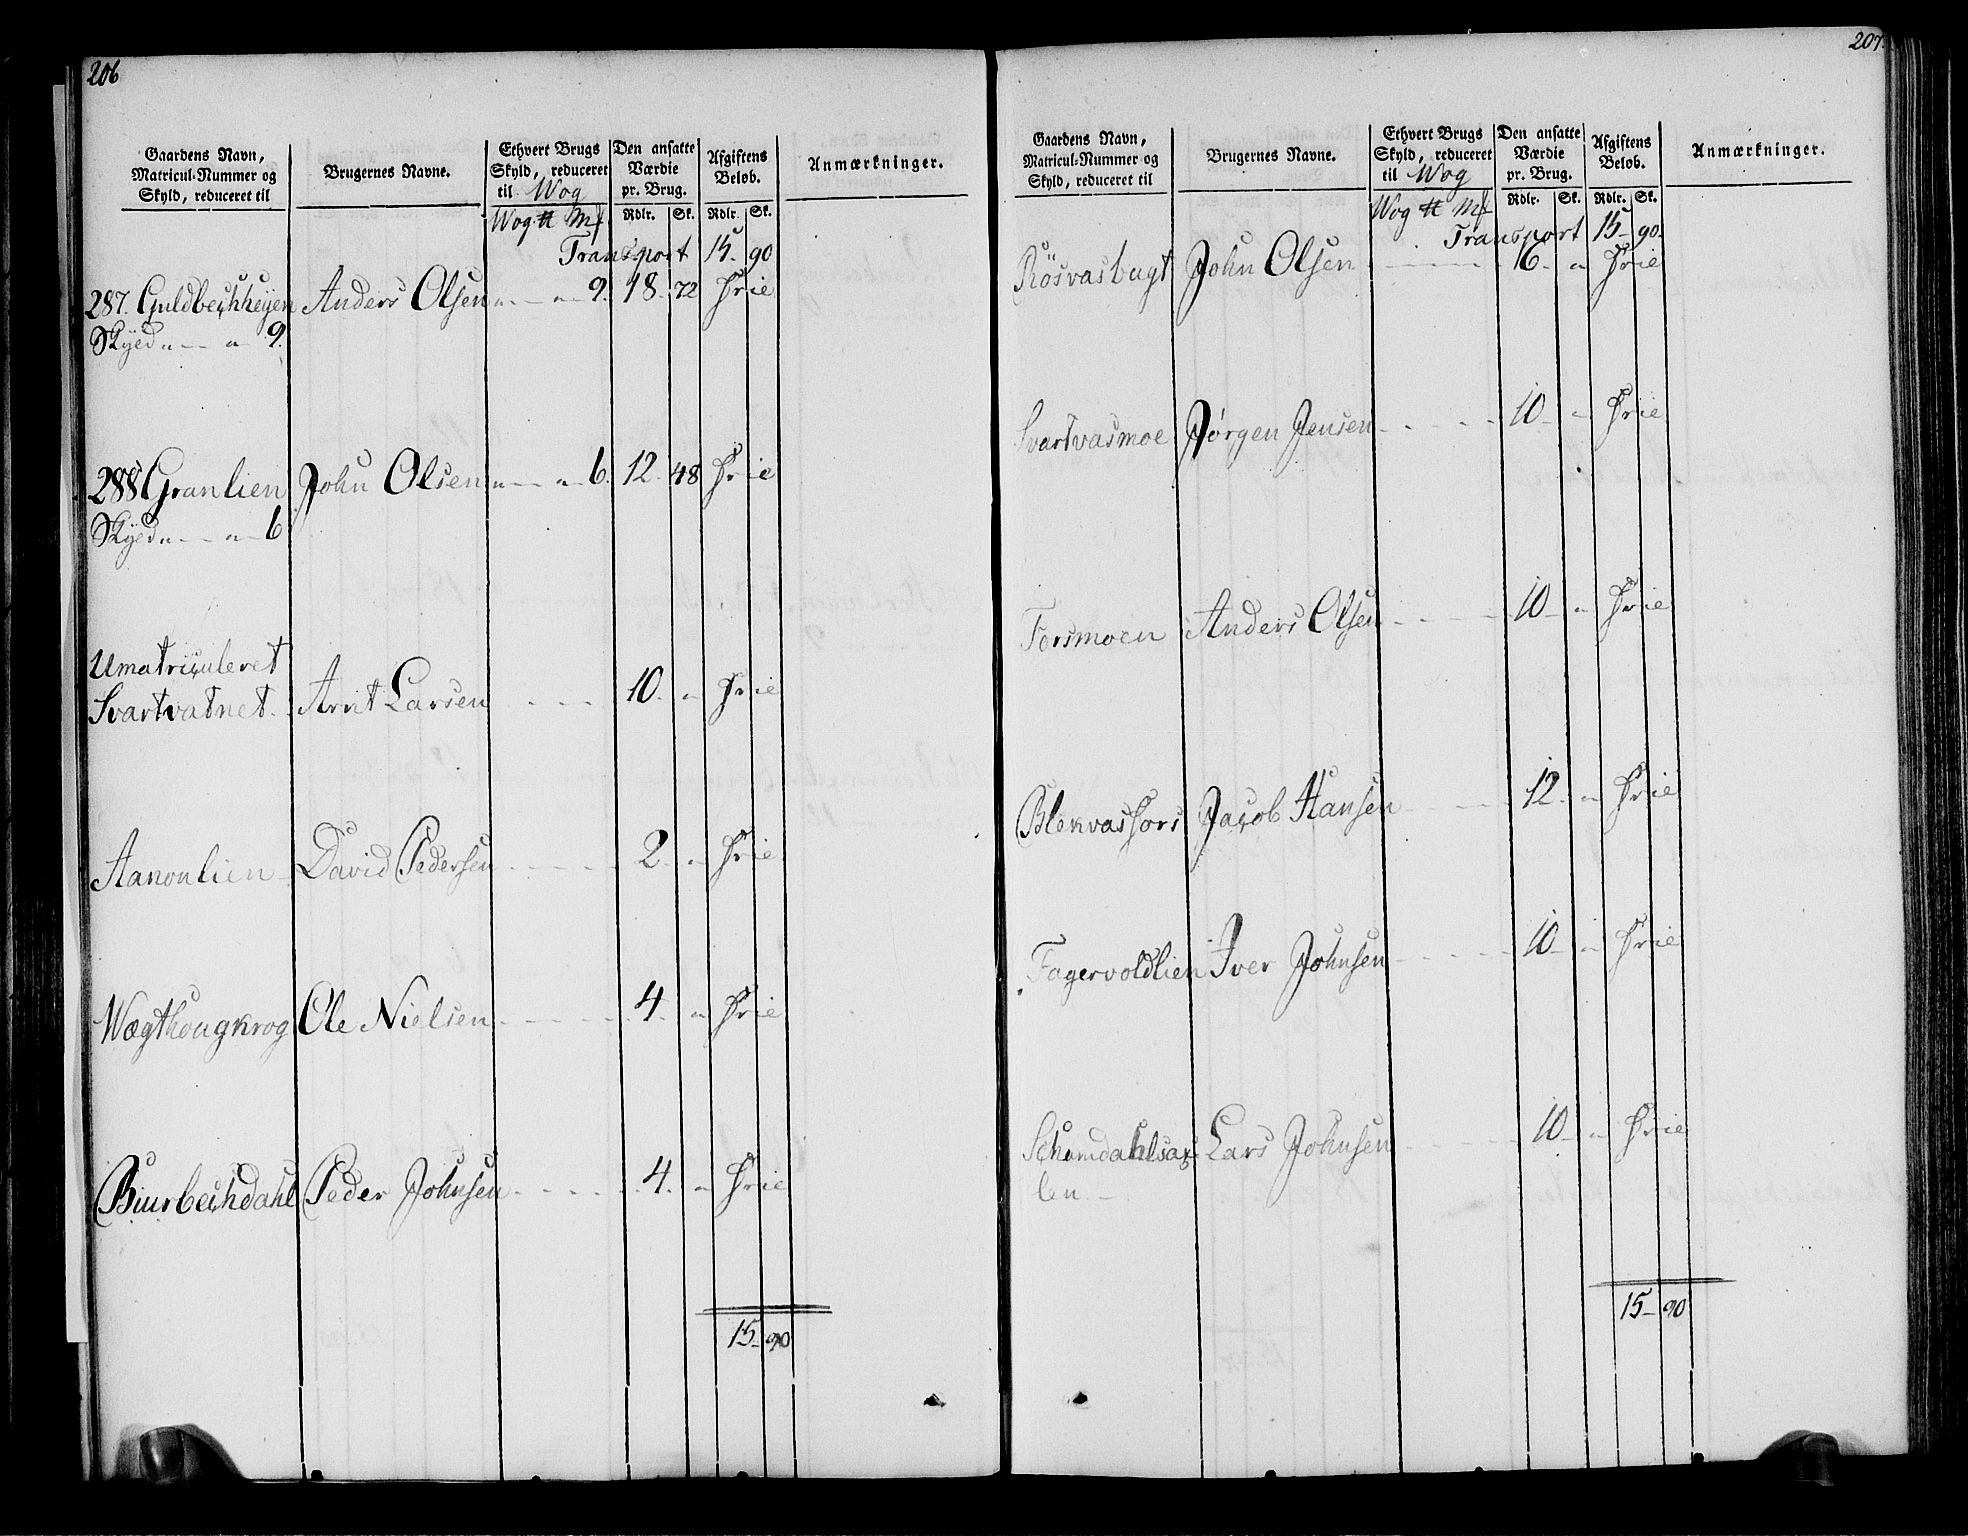 206
Gaardens Navn, Matricul-Nummer og Skyld, reduceret til | Brugernes Navne. | Ethvert Brugs Skyld, reduceret til Wog | Den ansatte Værdie pr. Brug. | Afgiftens Beløb. | Anmærkninger.
Wog ℔ Mk | Rdlr. | Sk. | Rdlr. | Sk.
Transport 15. 90
287. Guldbechheÿen Anders Olsen " — " 9. 18. 72 Frie
Skÿld " — " 9.
288 Granlien John Olsen " — " 6. 12. 48 Frie
Skÿld " — " 6
Umatriculeret
Svartvatnet. Arnt Larsen - - - 10. " Frie
Aanonlien David Pedersen - - - - 2. " Frie
Wægthougkrog Ole Nielsen - - - - 4. " Frie
Biurbechdahl Peder Johnsen - - - - 4. " Frie
15 - 90
207.
Gaardens Navn, Matricul-Nummer og Skyld, reduceret til | Brugernes Navne. | Ethvert Brugs Skyld, reduceret til Wog | Den ansatte Værdie pr. Brug. | Afgiftens Beløb. | Anmærkninger.
Wog ℔ Mk | Rdlr. | Sk. | Rdlr. | Sk.
Transport 15 - 90.
Rösvasbugt John Olsen - - - - 16. " Frie
Svartvasmoe Jørgen Jensen - - - - 10 - " Frie
Forsmoen Anders Olsen - - - - 10 - " Frie
Blekvasfors Jacob Hansen - - - - 12. " Frie
Fagervoldlien Iver Johnsen - - - - 10 - " Frie
Lars Johnsen - - - - 10 - " Frie
len -
15 - 90